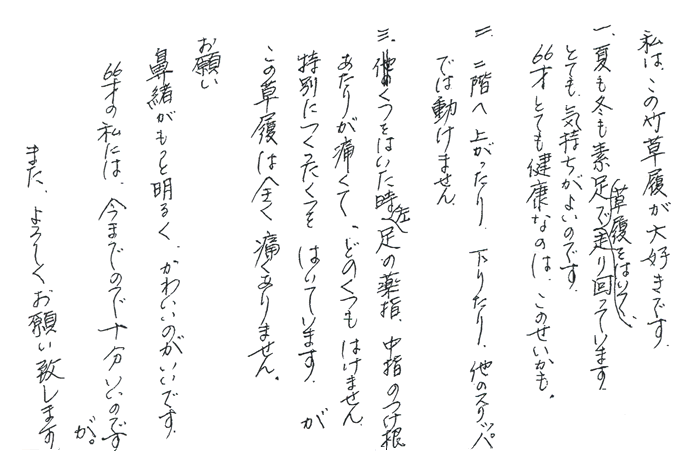 私は、この竹草履が大好きです。
一、夏も冬も素足で草履をはいて、走り回っています。
とても、気持ちがよいのです。
66才とても健康なのは、このせいかも。
二、二階へ上がったり、下りたり、他のスリッパ
では動けません
三、他のくつをはいた時、左足の薬指、中指のつけ根
あたりが痛くて、どのくつもはけません。
特別につくったくつを はいています。が
この草履は全く痛くありません。
お願い
鼻緒がもっと明るく、かわいいのがいいです。
66才の私には、今までので十分いいのです
が。
また、よろしくお願い致します